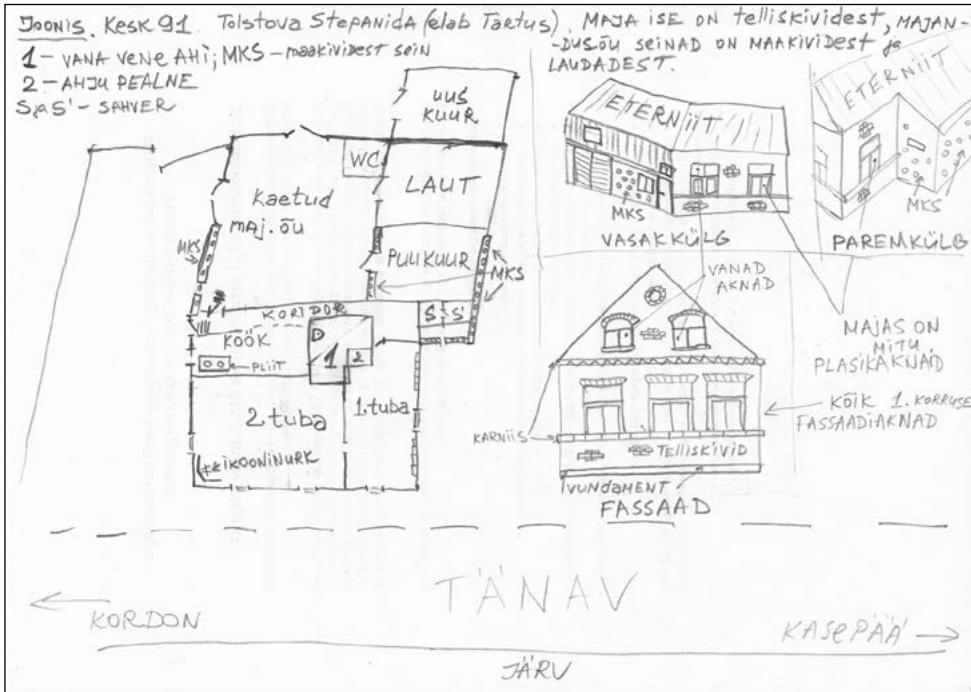 JOONIS. KESK 91. Tolstova Stepanida (elab Tartus). MAJA ISE ON telliskividest, MAJAN-
-DUSÕU SEINAD ON MAAKIVIDEST ja
LAUDADEST.
1 - VANA VENE AHI; MKS - maakividest sein
2 - AHJU PEALNE
S ja S' - SAHVER
UUS
KUUR
WC
LAUT
Kaetud
maj. õu
MKS
PUUKUUR
MKS
KORIDOR
S S'
KÖÖK
1
2
PLIIT
2. tuba
1. tuba
IKOONINURK
ETERNIIT
MKS
VASAK KÜLG
ETERNIIT
MKS
PAREM KÜLG
VANAD
AKNAD
MAJAS ON
MITU
PLASIKAKNAD
KÕIK 1. KORRUSE
FASSAADIAKNAD
KARNIIS
TELLISKIVID
VUNDAMENT
FASSAAD
TÄNAV
KORDON
KASEPÄÄ
JÄRV